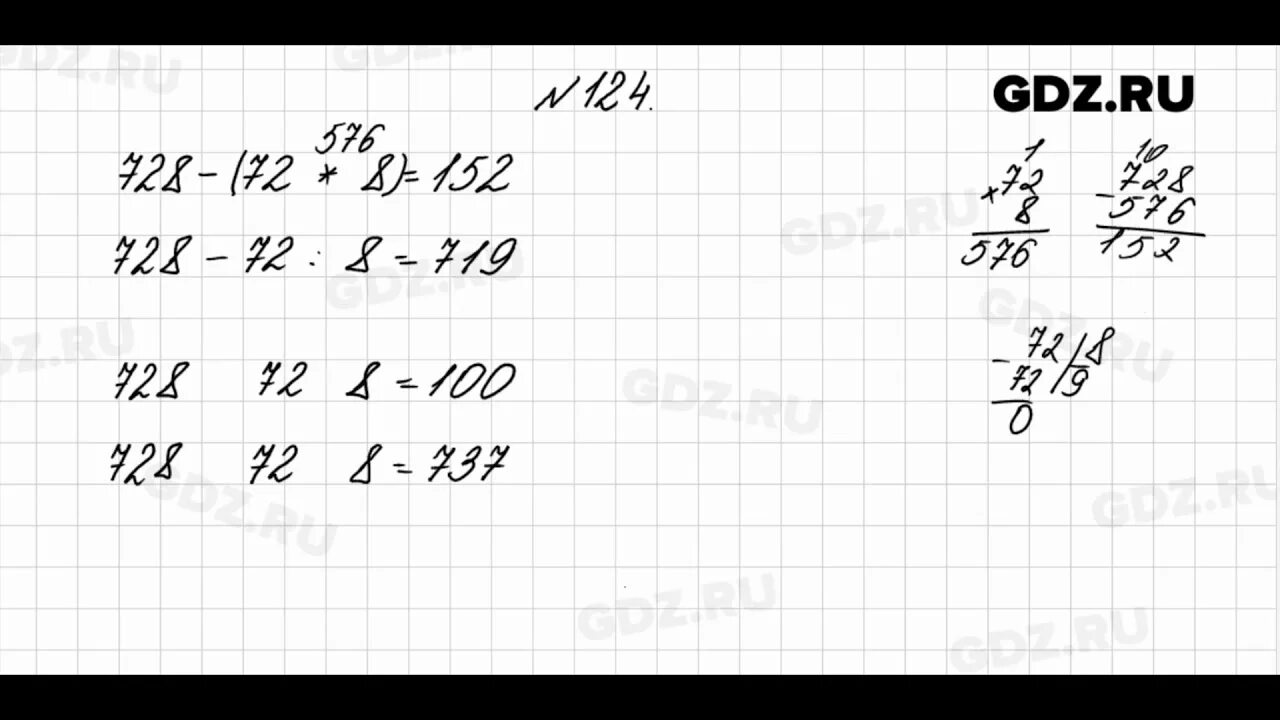 №124.
GDZ.RU
576
728-(72 * 8)=152
728-72:8=719
728 72 8=100
728 72 8=737
1
×72
8
576
10
-728
576
152
-72|8
72|9
0
GDZ.RU
GDZ.RU
GDZ.RU
GDZ.RU
GDZ.RU
GDZ.RU
GDZ.RU
GDZ.RU
GDZ.RU
GDZ.RU
GDZ.RU